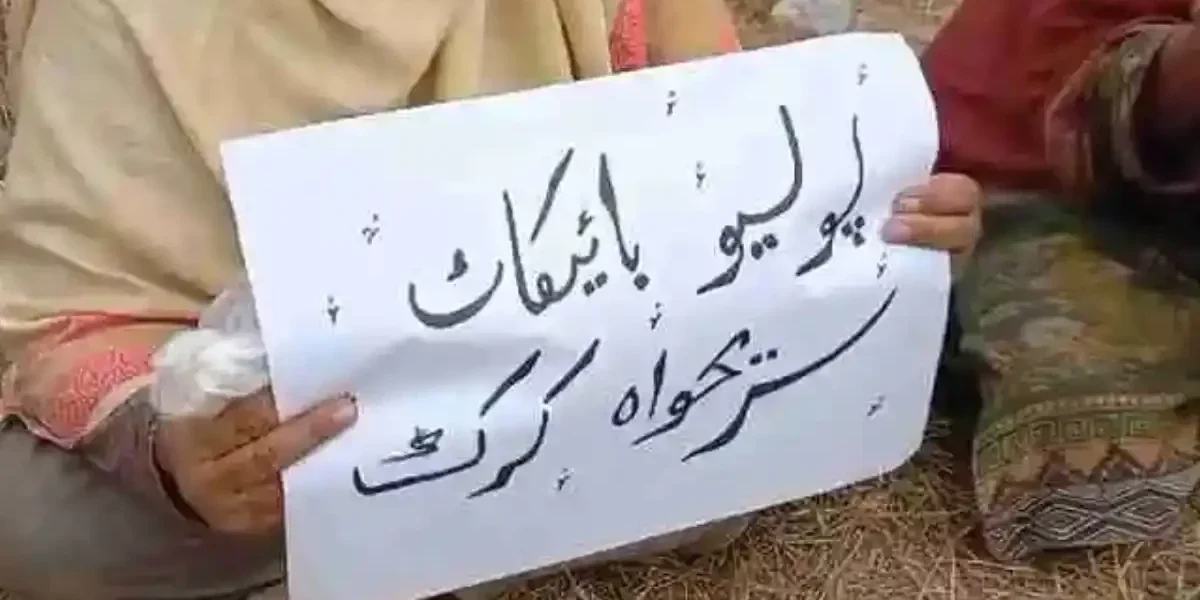 پولیو بائیکاٹ
سترخواہ کرک